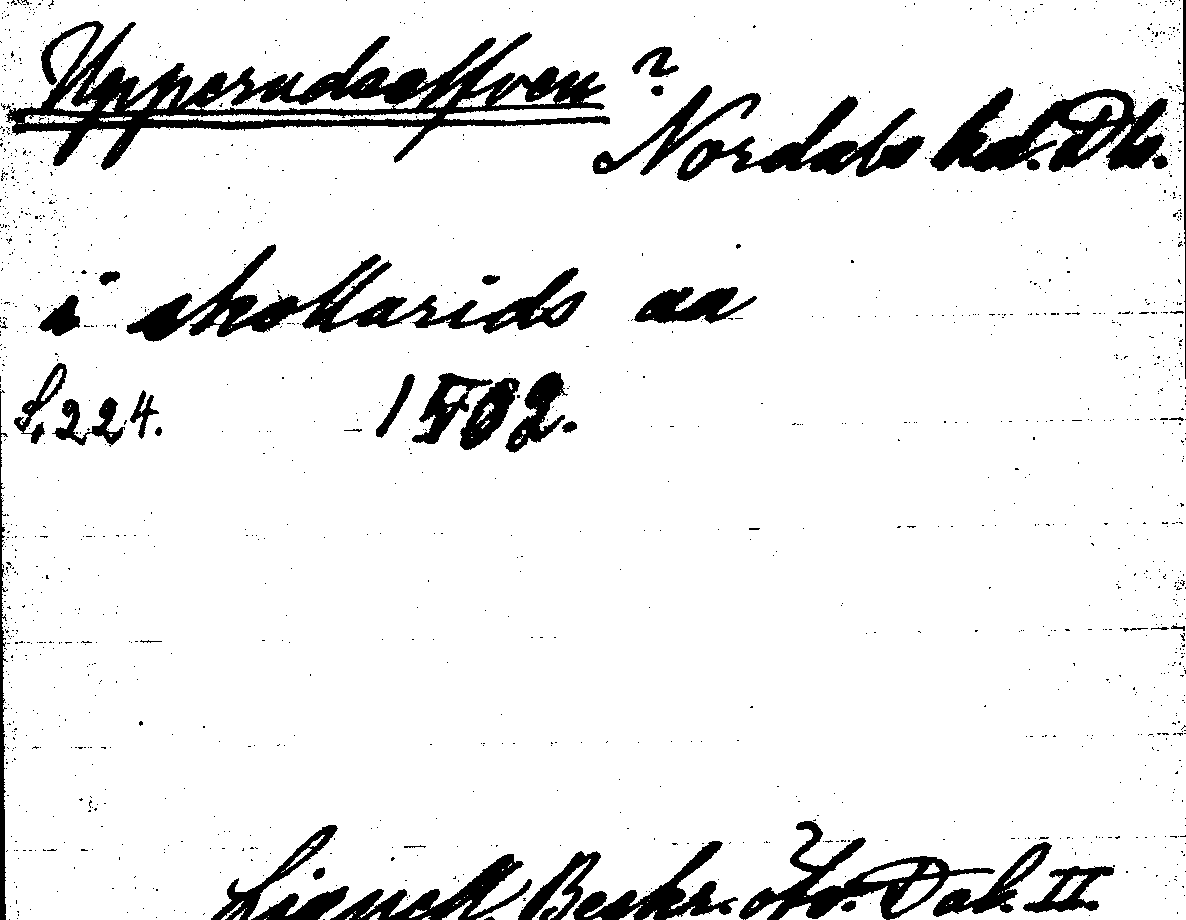 Upperudselfven ?
Nordals hd. Dls.
i skollarids aa
S. 224. 1502.
Lignell, Beskr. öfv. Dal. II.